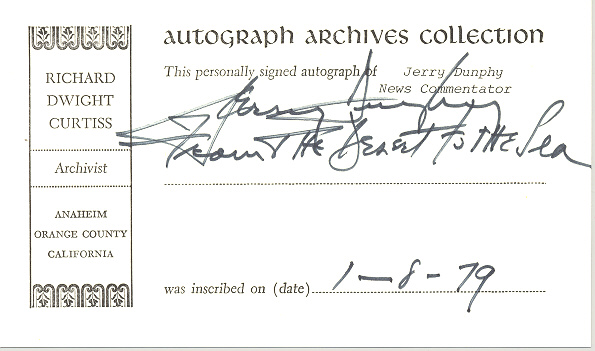 AUTOGRAPH ARCHIVES COLLECTION
RICHARD
DWIGHT
CURTISS
Archivist
ANAHEIM
ORANGE COUNTY
CALIFORNIA
This personally signed autograph of Jerry Dunphy
News Commentator
Jerry Dunphy
From THE Desert to THE Sea
was inscribed on (date) 1-8-79